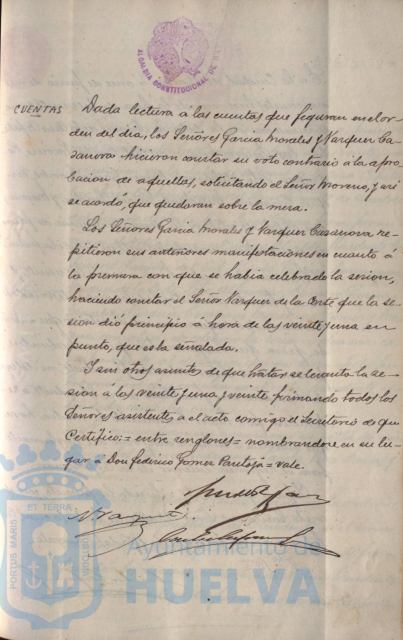 ALCALDIA CONSTITUCIONAL DE
CUENTAS
Dada lectura á las cuentas que figuran en el or-
den del dia, los Señores Garcia Morales y Vazquez Ca-
zanova hicieron constar su voto contrario á la apro-
bacion de aquellas, solicitando el Señor Moreno, y asi
se acordo, que quedaran sobre la mesa.
Los Señores Garcia Morales y Vazquez Casanova re-
pitieron sus anteriores manifestaciones en cuanto á
la premura con que se habia celebrado la sesion,
haciendo constar el Señor Vazquez de la Corte que la se-
sion dió principio á hora de las veinte y una en
punto, que esta señalada.
I sin otros asuntos de que tratar se levanto la se-
sion á las veinte y una y veinte, firmando todos los
Señores asistentes al acto comigo el Secretario de que
Certifico: = entre renglones = nombrandose en su lu-
gar a Don Federico Gomez Pantoja = vale.
PORTUS MARIS ET TERRÆ CUSTODIA
Ayuntamiento de
HUELVA